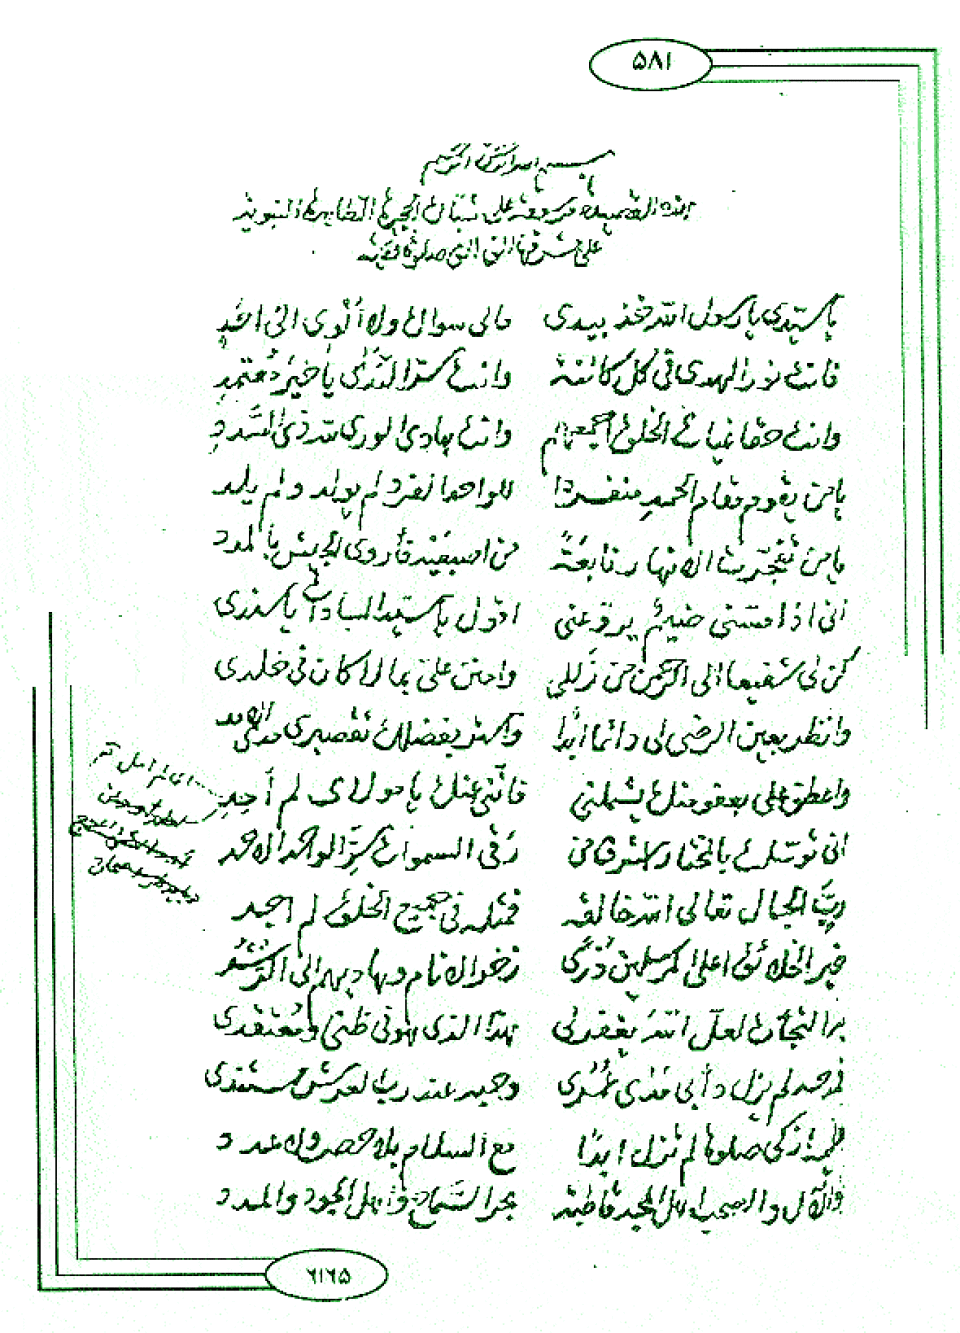 ۵۸۱
بسم الله الرحمن الرحيم
هذه القصيدة مرقومة على شباك الحجرة الطاهرة النبوية
على مشرفها الف الف صلوة و تحية
يا سيدي يا رسول الله خذ بيدي مالي سواك ولا ألوي الى احد
فانت نور الهدى في كل كائنة وانت سر الندى يا خير معتمد
وانت حقا غياث الخلق اجمعهم وانت هادي الورى لله ذي السدد
يا من يقوم مقام الحمد منفردا للواحد الفرد لم يولد ولم يلد
يا من تفجرت الانهار نابعة من اصبعيه فأروى الجيش بالمدد
اني اذا مسني ضيم يروعني اقول يا سيد السادات يا سندي
كن لي شفيعا الى الرحمن من زللي وامنن علي بما لا كان في خلدي
وانظر بعين الرضى لي دائما ابدا واستر بفضلك تقصيري مدى الامد
واعطف علي بعفو منك يشملني فانني عنك يا مولاي لم أحد
اني توسلت بالمختار اشرف من رقى السموات سر الواحد الاحد
رب الجمال تعالى الله خالقه فمثله في جميع الخلق لم اجد
خير الخلائق اعلى المرسلين ذرى ذخر الانام وهاديهم الى الرشد
به التجأت لعل الله يغفر لي هذا الذي هو في ظني ومعتقدي
فمدحه لم يزل دأبي مدى عمري وحبه عند رب العرش مستندي
عليه ازكى صلوة لم تزل ابدا مع السلام بلا حصر ولا عدد
والآل والصحب اهل المجد قاطبة بحر السماح و اهل الجود والمدد
۶۱۶۵